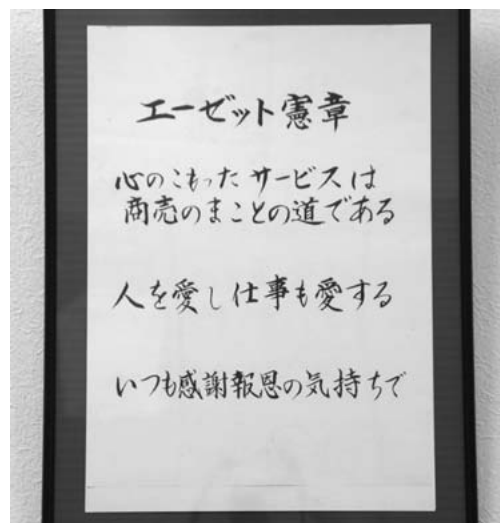 エーゼット憲章
心のこもった サービスは
商売のまことの道である
人を愛し仕事も愛する
いつも感謝報恩の気持ちで